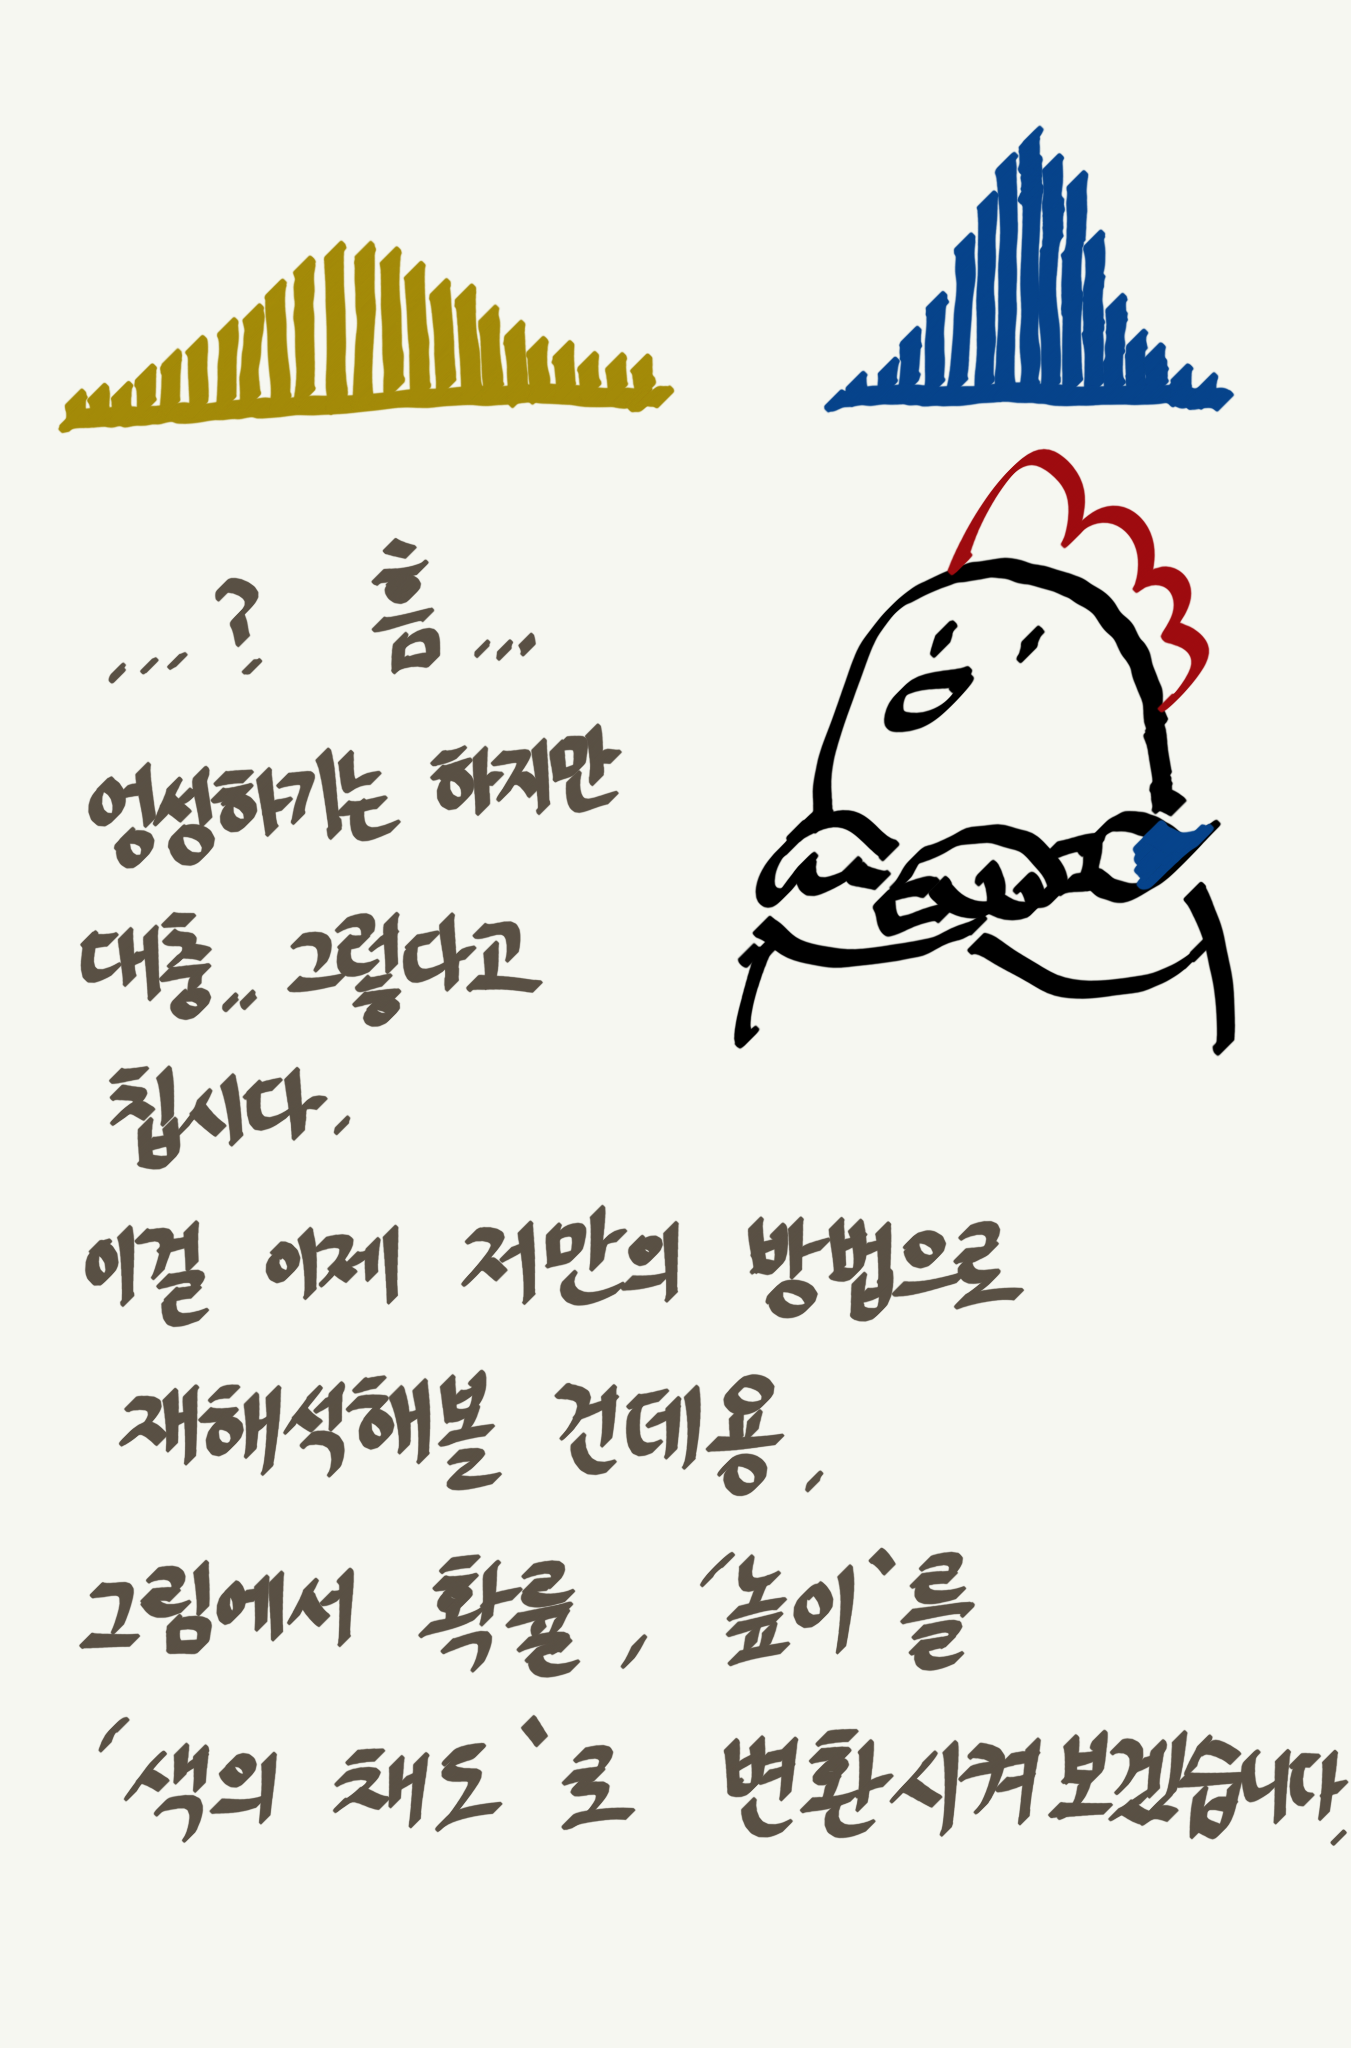 ...? 흠...
엉성하기는 하지만
대충.. 그렇다고
칩시다.
이걸 이제 저만의 방법으로
재해석해볼 건데용,
그림에서 확률, '높이'를
'색의 채도'로 변환시켜보겠습니다.